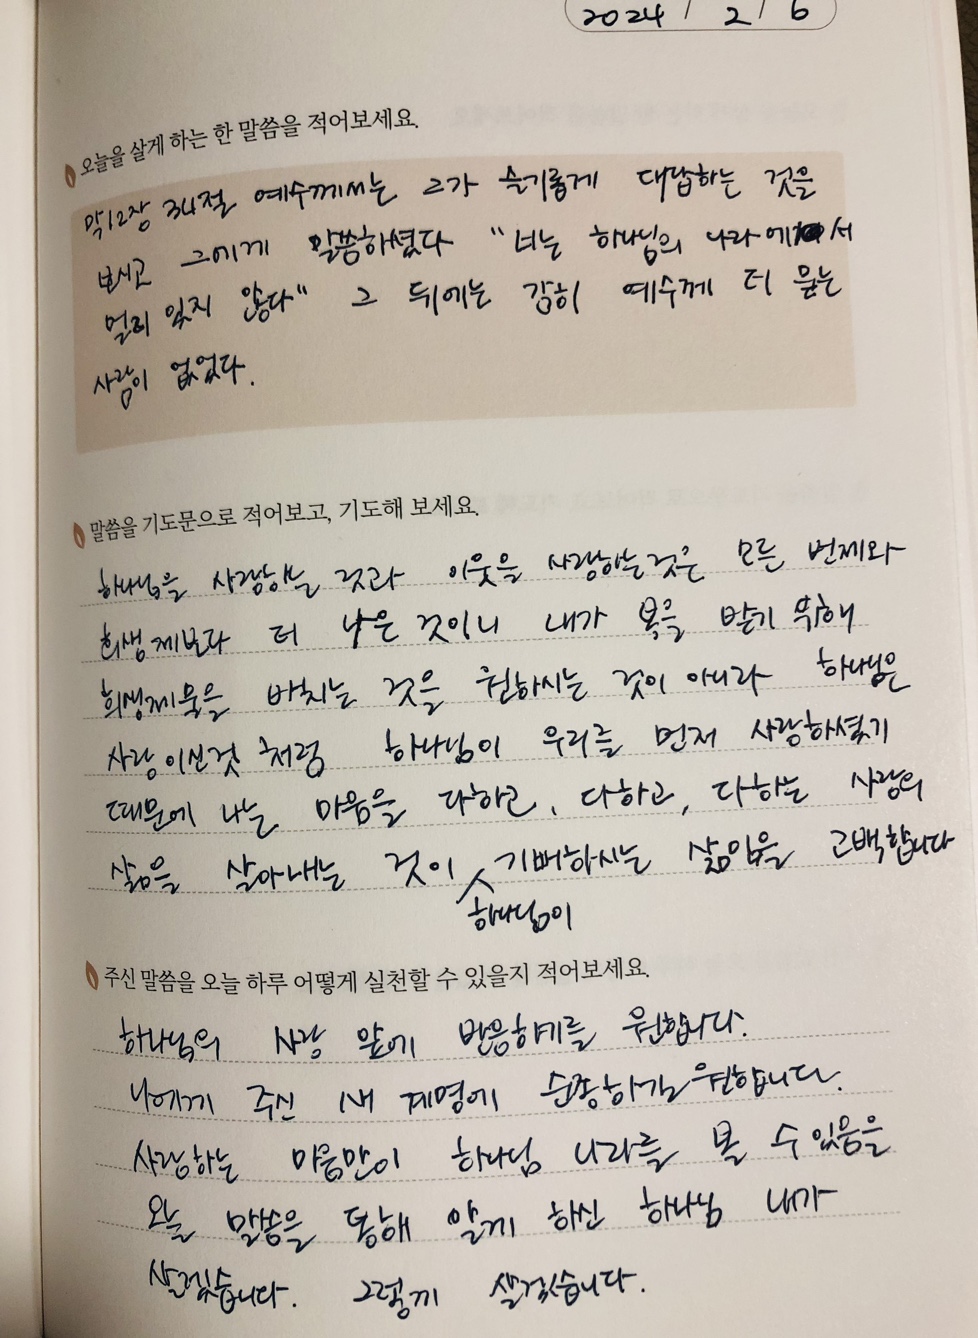 2024 / 2 / 6
오늘을 살게 하는 한 말씀을 적어보세요.
막12장 34절 예수께서는 그가 슬기롭게 대답하는 것을
보시고 그에게 말씀하셨다 "너는 하나님의 나라에서
멀리 있지 않다" 그 뒤에는 감히 예수께 더 묻는
사람이 없었다.
말씀을 기도문으로 적어보고, 기도해 보세요.
하나님을 사랑하는 것과 이웃을 사랑하는것은 모든 번제와
희생제보다 더 낮은 것이니 내가 복을 받기 위해
희생제물을 바치는 것을 원하시는 것이 아니라 하나님은
사랑이신것 처럼 하나님이 우리를 먼저 사랑하셨기
때문에 나는 마음을 다하고, 다하고, 다하는 사랑의
삶을 살아내는 것이 기뻐하시는 삶임을 고백합니다
하나님이
주신 말씀을 오늘 하루 어떻게 실천할 수 있을지 적어보세요.
하나님의 사랑 앞에 반응하게를 원합니다.
나에게 주신 새 계명에 순종하길 원합니다.
사랑하는 마음만이 하나님 나라를 볼 수 있음을
오늘 말씀을 통해 알게 하신 하나님 내가
살겠습니다. 그렇게 살겠습니다.